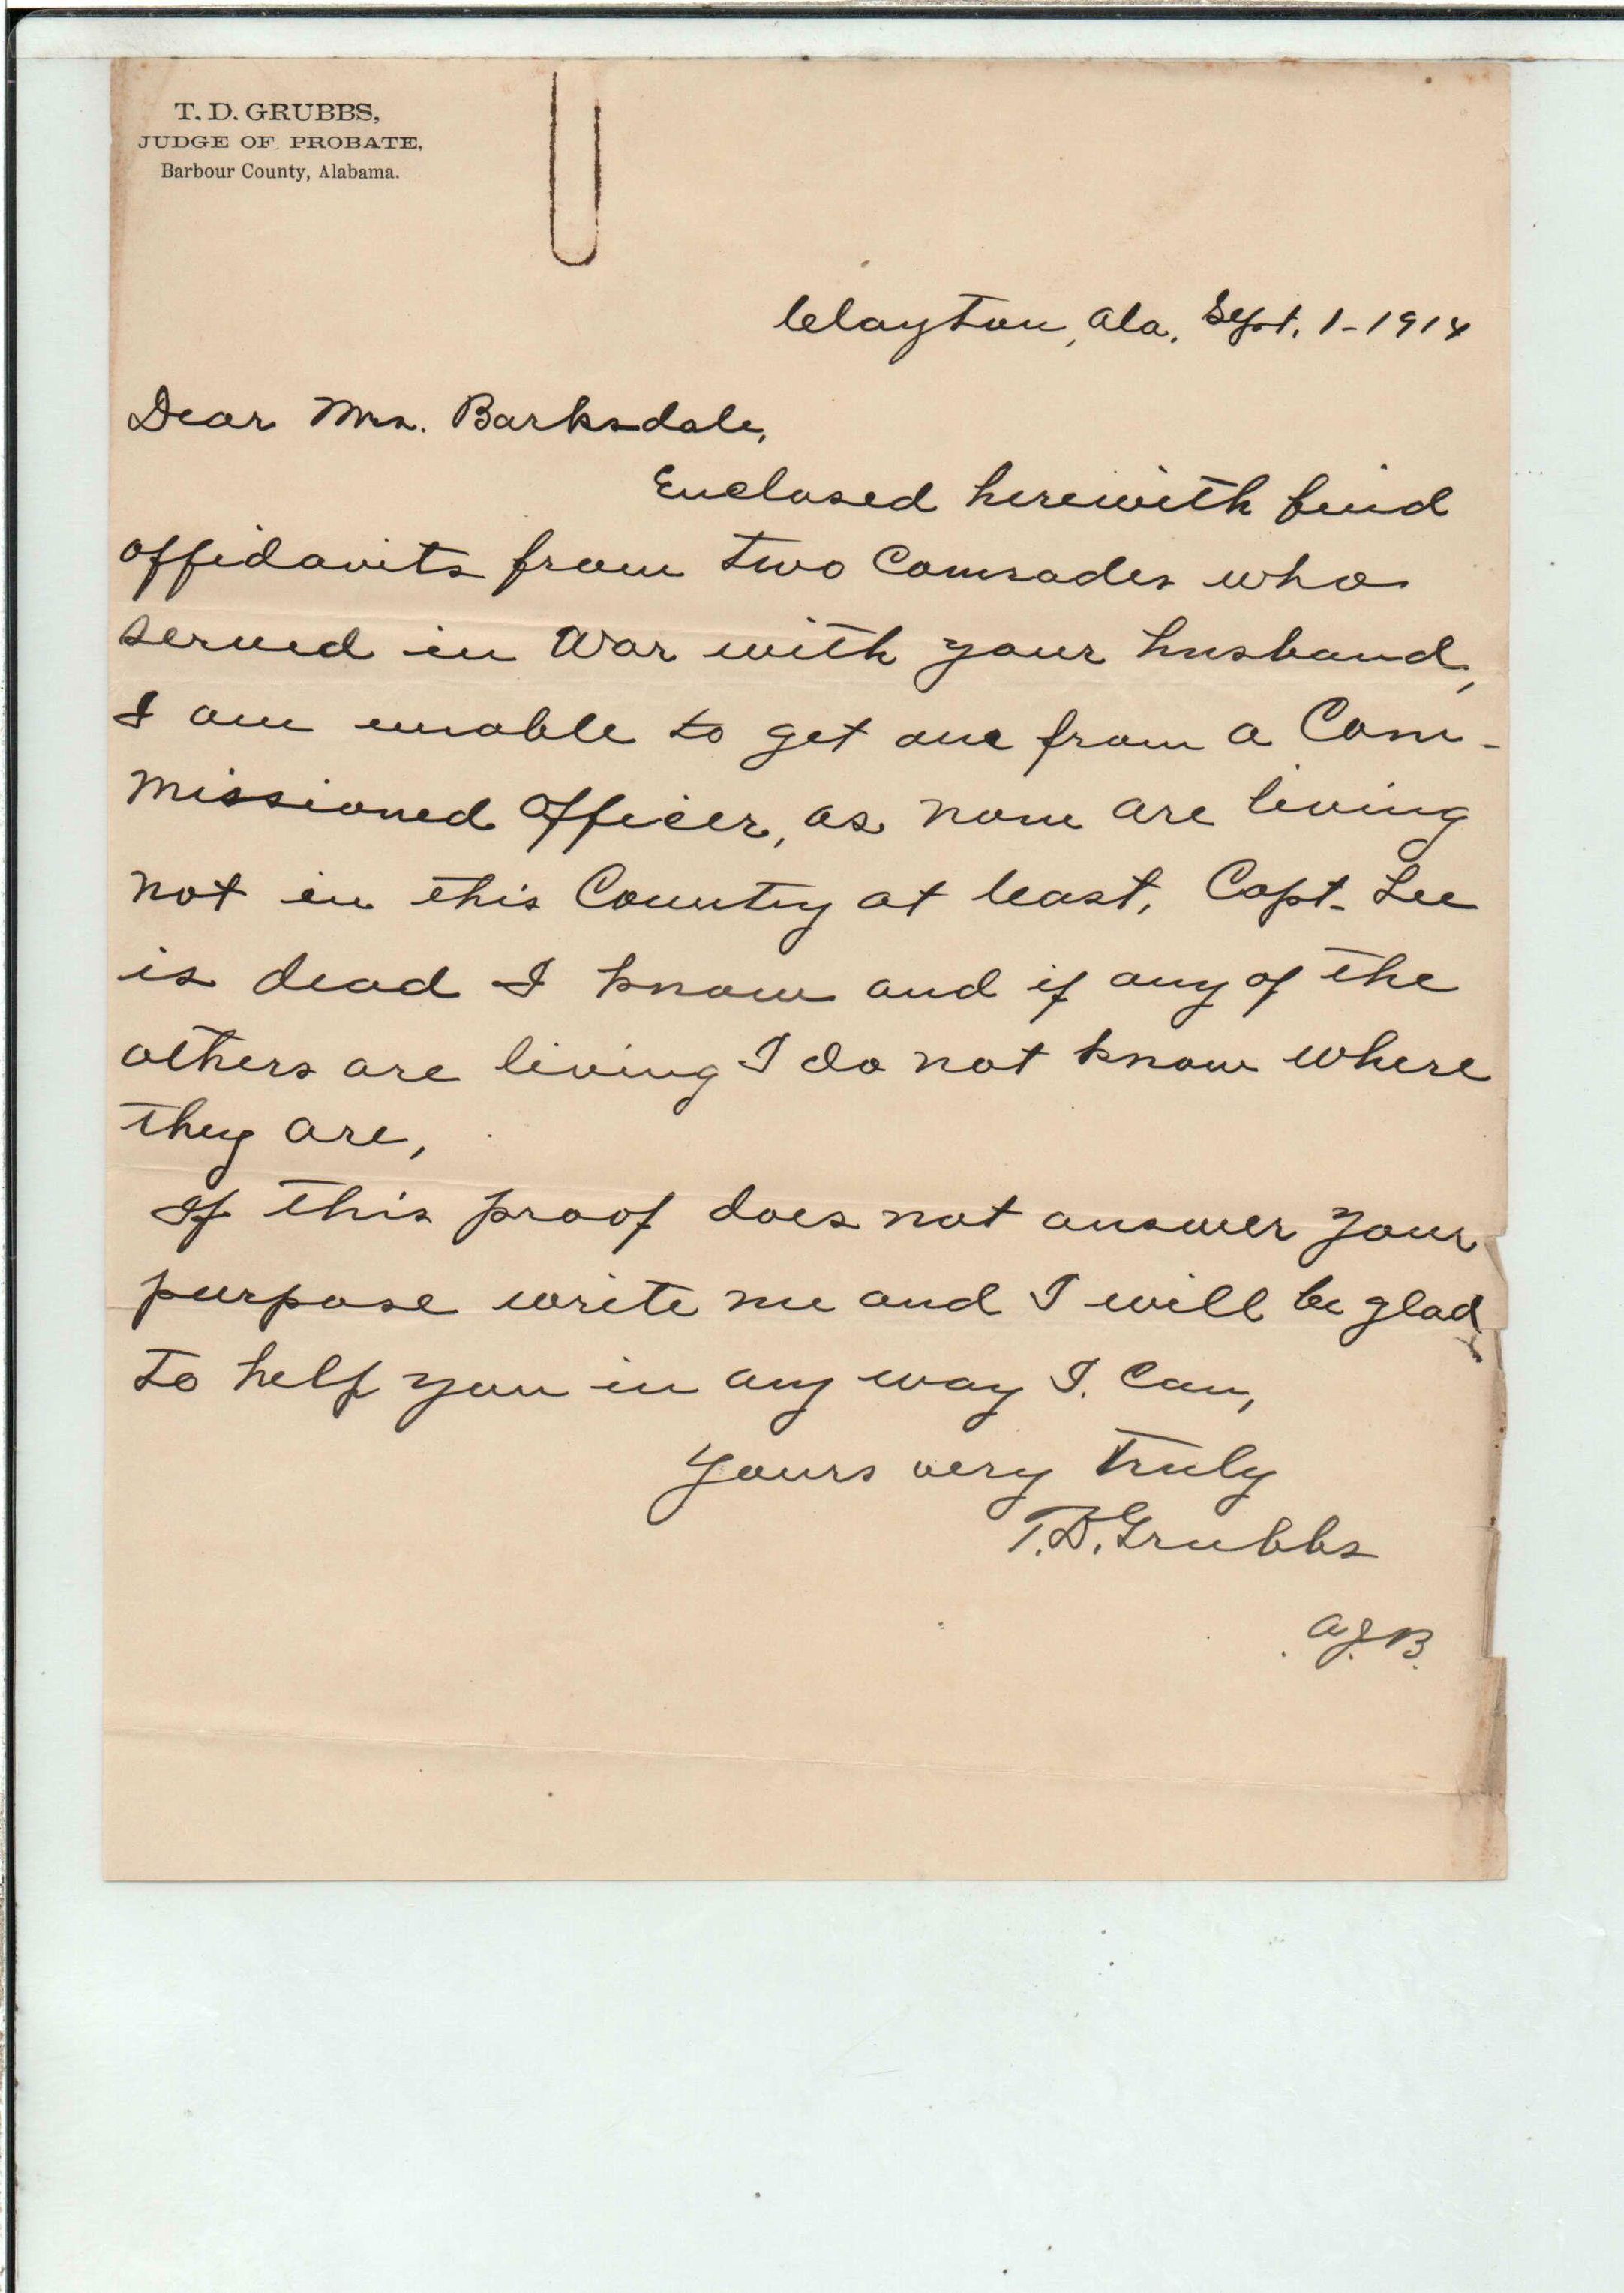 T. D. GRUBBS,
JUDGE OF PROBATE,
Barbour County, Alabama.
Clayton, Ala, Sept. 1-1914
Dear Mrs. Barksdale,
Enclosed herewith find
affidavits from two Comrades who
served in War with your husband,
I am unable to get one from a Com-
missioned officer, as none are living
not in this Country at least, Capt. Lee
is dead I know and if any of the
others are living I do not know where
they are,
If this proof does not answer your
purpose write me and I will be glad
to help you in any way I. Can,
yours very truly
T.D. Grubbs
A.J.B.